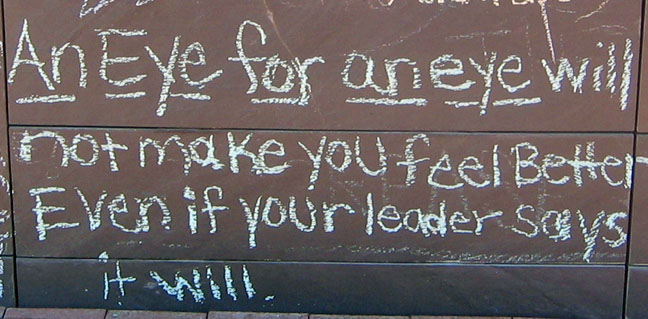 An Eye for an eye will
not make you feel Better
Even if your leader says
it will.